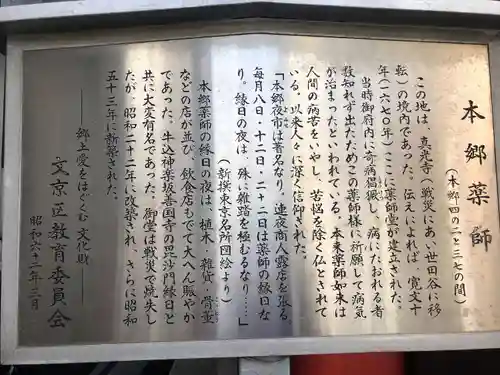 本郷薬師
(本郷四の二と三七の間)
この地は、真光寺(戦災にあい、世田谷に移
転)の境内であった。伝えによれば、寛文十
年(一六七〇年)ここに薬師堂が建立された。
当時御府内に奇病猖獗し、病にたおれる者
数知れず出たためこの薬師様に祈願して病気
が治まったといわれている。本来薬師如来は
人間の病苦をいやし、苦悩を除く仏とされて
いる。以来人々に深く信仰された。
「本郷夜市は著名なり。連夜商人露店を張る。
毎月八日・十二日・二十二日は薬師の縁日な
り。縁日の夜は、殊に雑踏を極むるなり……」
(新撰東京名所図絵より)
本郷薬師の縁日の夜は、植木、雑貨、骨董
などの店が並び、飲食店もでて大へん賑やか
であった。牛込神楽坂善国寺の毘沙門縁日と
共に大変有名であった。御堂は戦災で焼失し
たが、昭和二十二年に改築され、さらに昭和
五十三年に新築された。
――郷土愛をはぐくむ文化財――
文京区教育委員会
昭和六十一年三月